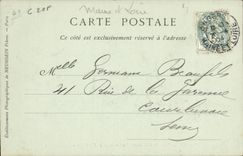 Maine et Loire
CARTE POSTALE
Ce côté est exclusivement réservé à l'adresse
Melle Germaine
41 Rue de la Garenne
Courbevoie
Seine
Etablissements Photographiques de NEURDEIN Frères. — Paris